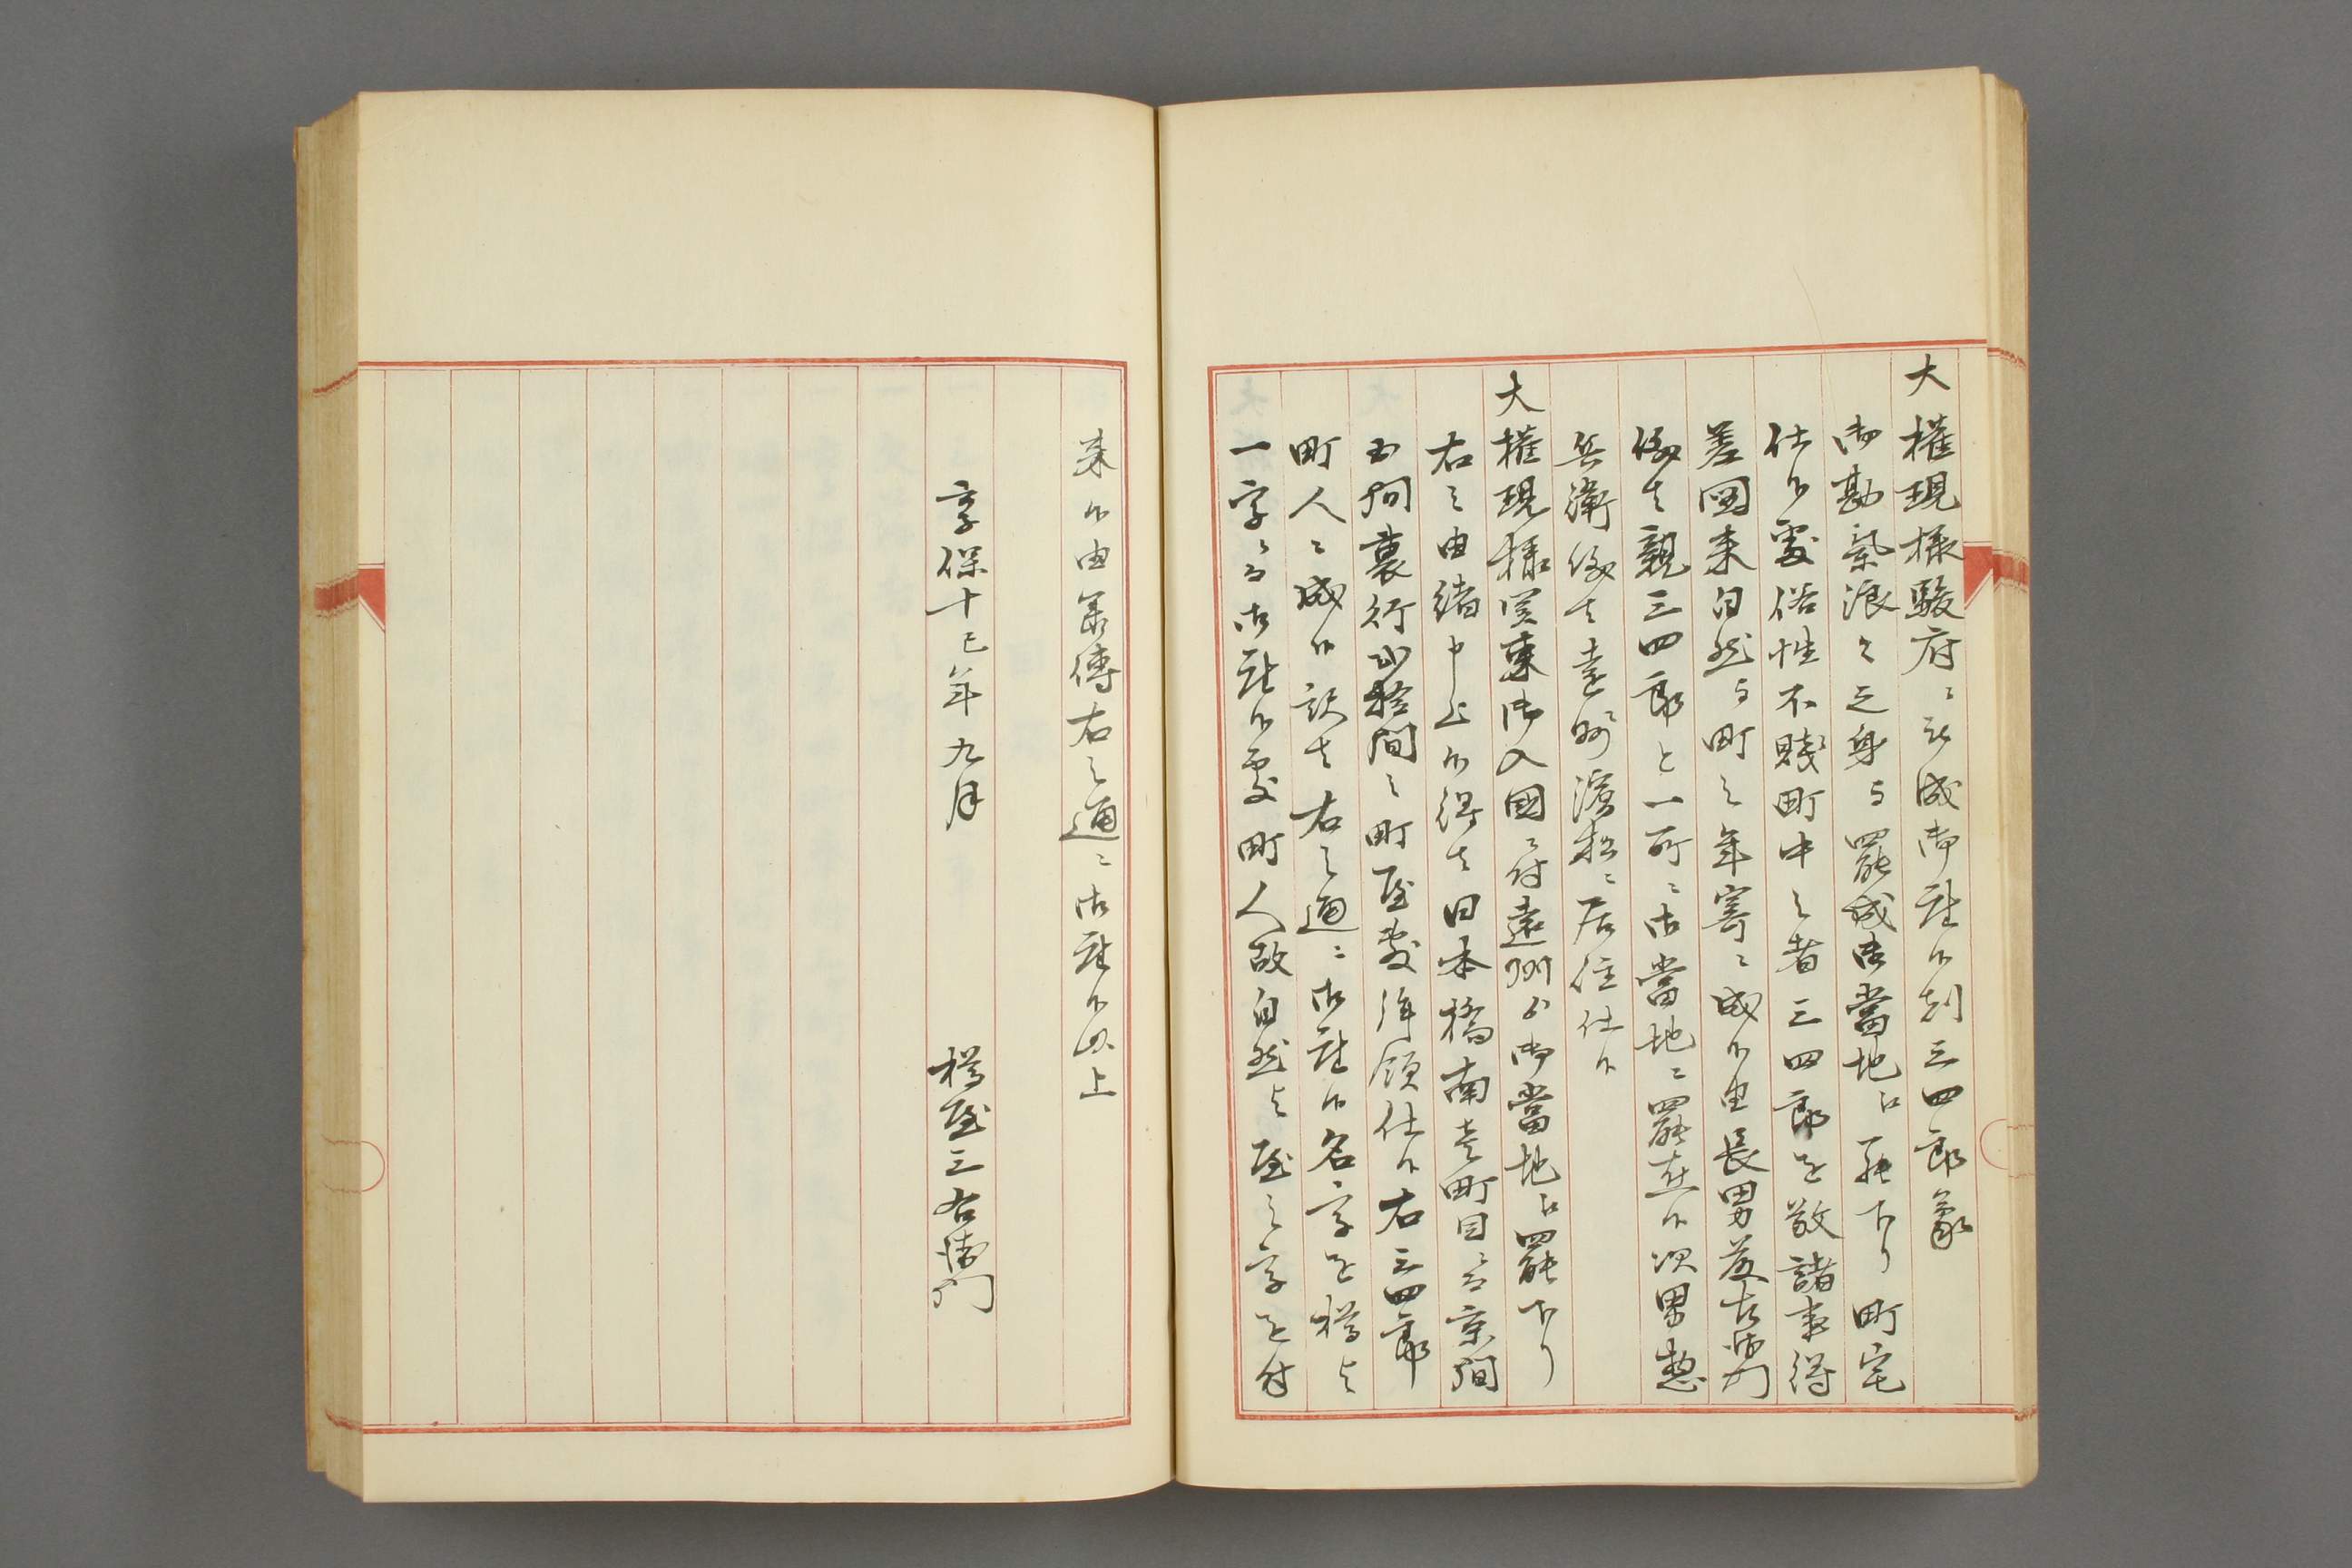 大権現様駿府ニ被成御座候刻三四郎蒙
御勘気浪々之身ニ而罷成御当地江罷下り町宅
仕候處俗性不賤町中之者三四郎を敬諸事得
差圖来自然与町之年寄ニ成候由長男藤左衛門
儀者親三四郎と一所ニ御當地ニ罷在候次男惣
兵衛儀者遠州濱松ニ居住仕候
大権現様関東御入國ニ付遠州ゟ御當地江罷下り
右之由緒申上候得者日本橋南壱町目ニ而京間
五間裏行弐拾間之町屋敷拝領仕候右三四郎
町人ニ成候訳者右之通ニ御座候名字を樽与
一字ニ而御座候處町人故自然与屋之字を付
来候由申傳右之通ニ御座候以上
享保十巳年九月
樽屋三右衛門